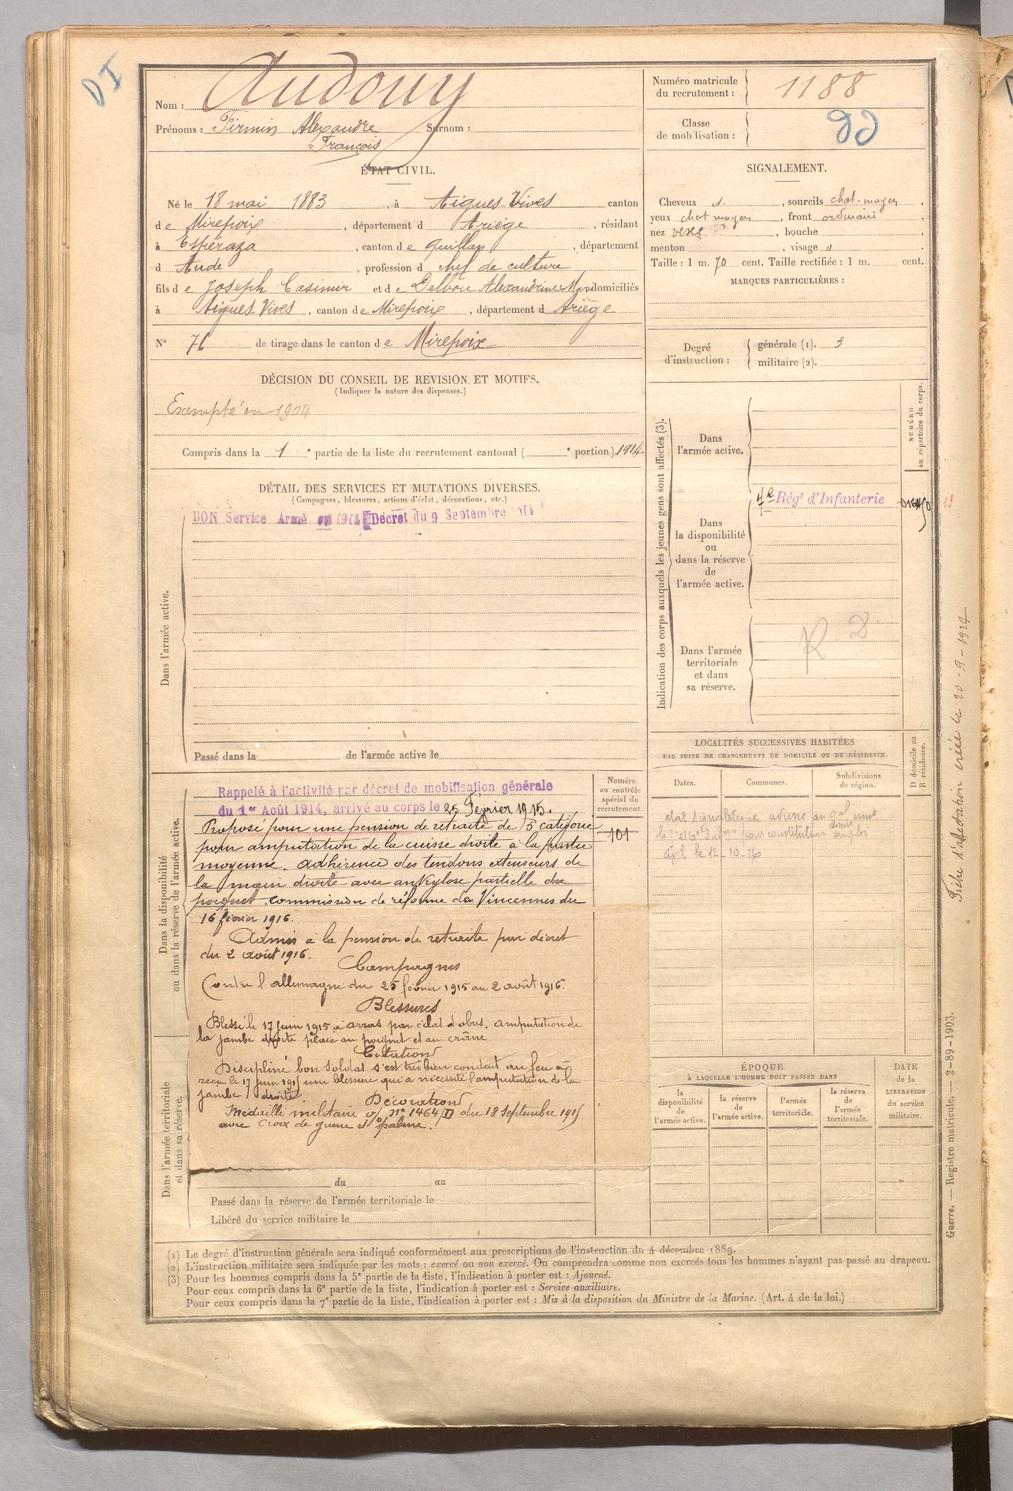 DI
Nom : Audouy
Prénoms : Firmin Alexandre Surnom :
François
ÉTAT CIVIL.
Né le 18 mai 1883, à Aigues-Vives canton
de Mirepoix, département d Ariège, résidant
à Espéraza, canton de Quillan, département
d Aude, profession d chef de culture
fils de Joseph Casimir et de Alexandrine domiciliés
à Aigues Vives, canton de Mirepoix, département d Ariège
N° 76 de tirage dans le canton de Mirepoix
DÉCISION DU CONSEIL DE REVISION ET MOTIFS.
(Indiquer la nature des dispenses.)
Exempté en 1904
Compris dans la 1e partie de la liste du recrutement cantonal ( e portion) 1914
DÉTAIL DES SERVICES ET MUTATIONS DIVERSES.
(Campagnes, blessures, actions d'éclat, décorations, etc.)
BON Service Armé 1914 Décret du 9 Septembre 1914
Dans l'armée active.
Passé dans la de l'armée active le
Dans la disponibilité
ou dans la réserve de l'armée active.
Rappelé à l'activité par décret de mobilisation générale
du 1er Août 1914, arrivé au corps le 25 Février 1915.
Proposé pour une pension de retraite de 5 catégorie
pour amputation de la cuisse droite à la partie
moyenne. Adhérence des tendons extenseurs de
la main droite avec ankylose partielle du
poignet. Commission de réforme de Vincennes du
16 février 1916.
Admis à la pension de retraite par décret
du 2 août 1916.
Campagnes
Contre l'allemagne du 25 février 1915 au 2 août 1916.
Blessures
Blessé le 17 juin 1915 à Arras par éclat d'obus. amputation de
la jambe droite plaie au poignet et au crâne
Citation
Discipliné bon soldat s'est très bien conduit au feu a
reçu le 17 juin 1915 une blessure qui a nécessité l'amputation de la
jambe droite
Décoration
Médaille militaire n° 1464 D du 18 Septembre 1915
avec croix de guerre et palme.
Numéro
au contrôle
spécial du
recrutement.
101
Dans l'armée territoriale
et dans sa réserve.
du au
Passé dans la réserve de l'armée territoriale le
Libéré du service militaire le
Numéro matricule
du recrutement : 1188
Classe
de mobilisation :
SIGNALEMENT.
Cheveux , sourcils chat. moyen,
yeux chat moyen, front ordinaire,
nez , bouche ,
menton , visage ,
Taille : 1 m. 70 cent. Taille rectifiée : 1 m. cent.
MARQUES PARTICULIÈRES :
Degré
d'instruction :
générale (1). 3
militaire (2).
Indication des corps auxquels les jeunes gens sont affectés (3).
NUMÉRO
au répertoire du corps.
Dans
l'armée active.
Régt d'Infanterie
Dans
la disponibilité
ou
dans la réserve
de
l'armée active.
Dans l'armée
territoriale
et dans
sa réserve.
R. D.
LOCALITÉS SUCCESSIVES HABITÉES
PAR SUITE DE CHANGEMENTS DE DOMICILE OU DE RÉSIDENCE.
D domicile ou
R résidence.
Dates.
Communes.
Subdivisions
de région.
le 12-10-16
ÉPOQUE
À LAQUELLE L'HOMME DOIT PASSER DANS
la
disponibilité
de
l'armée active.
la réserve
de
l'armée active.
l'armée
territoriale.
la réserve
de
l'armée
territoriale.
DATE
de la
LIBÉRATION
du service
militaire.
Fiche d'affectation créée le 20-9-1924
Guerre. — Registre matricule. — 3-89-1903.
(1) Le degré d'instruction générale sera indiqué conformément aux prescriptions de l'instruction du 4 décembre 1889.
(2) L'instruction militaire sera indiquée par les mots : exercé ou non exercé. On comprendra comme non exercés tous les hommes n'ayant pas passé au drapeau.
(3) Pour les hommes compris dans la 5e partie de la liste, l'indication à porter est : Ajourné.
Pour ceux compris dans la 6e partie de la liste, l'indication à porter est : Service auxiliaire.
Pour ceux compris dans la 7e partie de la liste, l'indication à porter est : Mis à la disposition du Ministre de la Marine. (Art. 4 de la loi.)